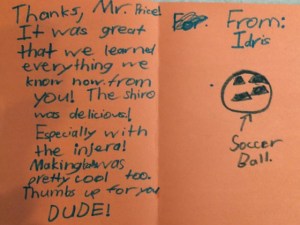 Thanks, Mr. Price!
It was great
that we learned
everything we
know now from
you! The shiro
was delicious!
Especially with
the injera!
Making was
pretty cool too.
Thumbs up for you
DUDE!
From:
Idris
Soccer
Ball.